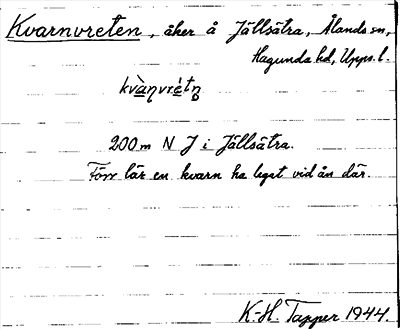 Kvarnvreten, åker å Jällsätra, Ålands sn,
Hagunda hd, Upps. l.
kvànvrétn
200 m N J i Jällsätra.
Förr lär en kvarn ha legat vid ån där.
K-H. Tapper 1944.